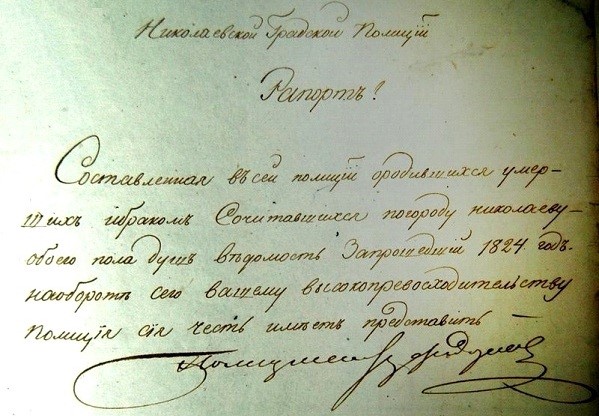 Николаевской Градской Полиціи
Рапортъ!
Составленная въ сей полиціи ородившихся умер-
шихъ ибракомъ Сочитавшихся погороду николаеву-
обоего пола душъ вѣдомость Запрошедшій 1824 годъ.
наоборотѣ сего вашему высокопревосходительству
полиція сія честь имѣетъ представить